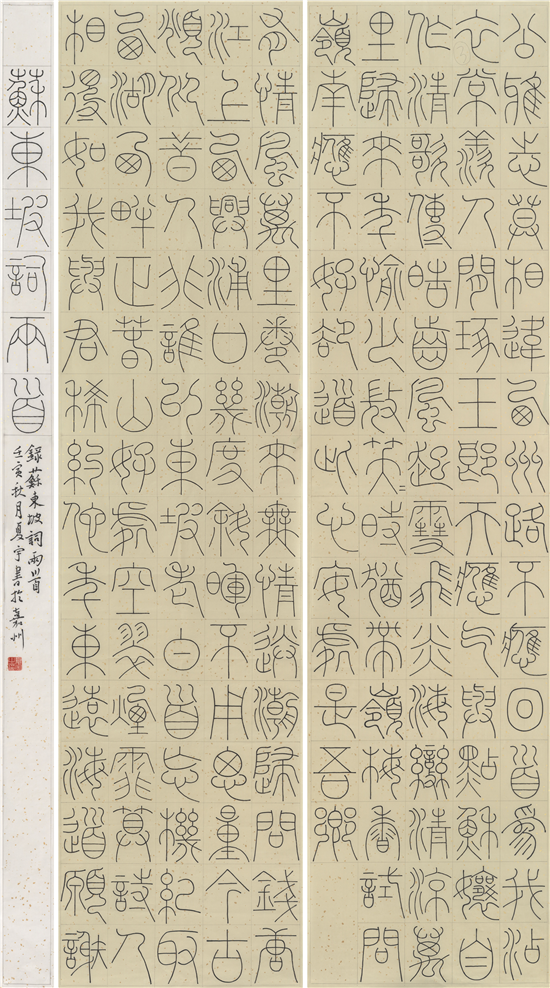 有情風萬里卷潮來無情送潮歸問錢唐
江上西興浦口幾度斜暉不用思量今古
俯仰昔人非誰似東坡老白首忘機記取
西湖西畔正春山好處空翠煙霏算詩人
相得如我與君稀約他年東還海道願謝
公雅志莫相違西州路不應回首為我沾
衣常羨人間琢玉郎天應乞與點酥娘自
作清歌傳皓齒風起雪飛炎海變清涼萬
里歸來年愈少微笑〻時猶帶嶺梅香試問
嶺南應不好卻道此心安處是吾鄉
蘇東坡詞兩首
錄蘇東坡詞兩首
壬寅秋月夏宇書於嘉州